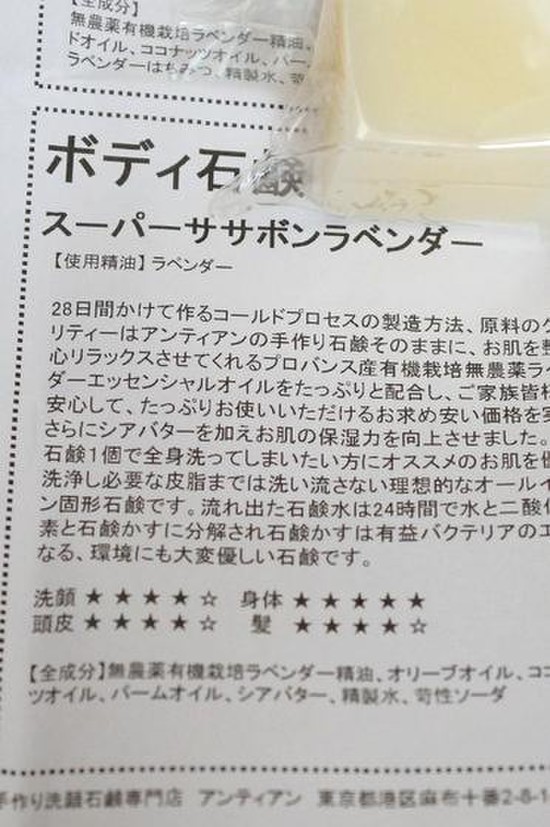 【全成分】
無農薬有機栽培ラベンダー精油、
ドオイル、ココナッツオイル、パー
ラベンダーはちみつ、精製水、苛
ボディ石鹸
スーパーササボンラベンダー
【使用精油】ラベンダー
28日間かけて作るコールドプロセスの製造方法、原料のク
リティーはアンティアンの手作り石鹸そのままに、お肌を整
心リラックスさせてくれるプロバンス産有機栽培無農薬ラベ
ダーエッセンシャルオイルをたっぷりと配合し、ご家族皆様
安心して、たっぷりお使いいただけるお求め安い価格を実
さらにシアバターを加えお肌の保湿力を向上させました。
石鹸1個で全身洗ってしまいたい方にオススメのお肌を優
洗浄し必要な皮脂までは洗い流さない理想的なオールイ
ン固形石鹸です。流れ出た石鹸水は24時間で水と二酸化
素と石鹸かすに分解され石鹸かすは有益バクテリアのエ
なる、環境にも大変優しい石鹸です。
洗顔 ★★★★☆ 身体 ★★★★★
頭皮 ★★★★☆ 髪 ★★★★☆
【全成分】無農薬有機栽培ラベンダー精油、オリーブオイル、ココ
ツオイル、パームオイル、シアバター、精製水、苛性ソーダ
手作り洗顔石鹸専門店 アンティアン 東京都港区麻布十番2-8-1